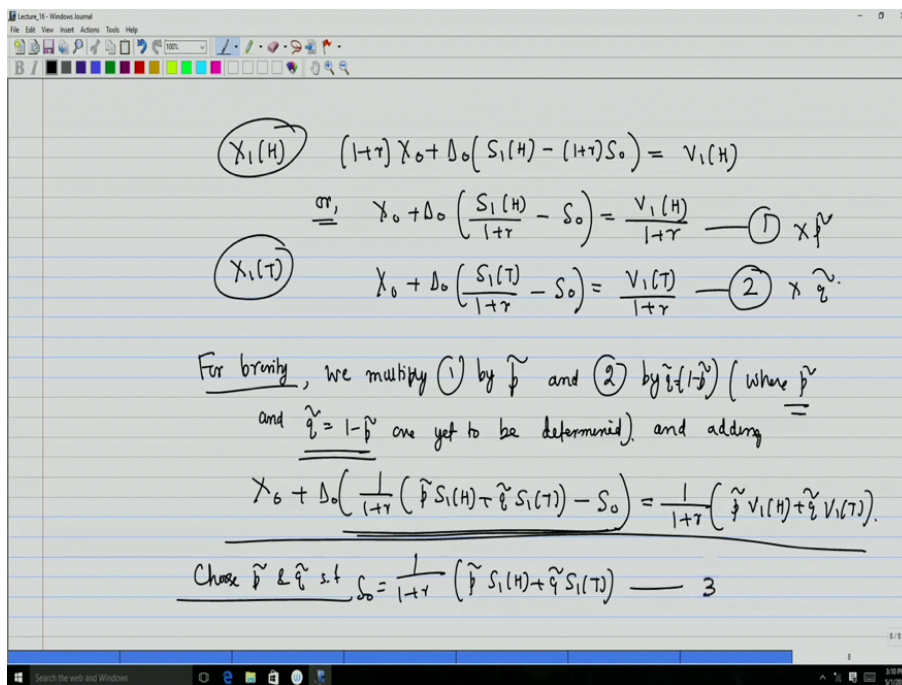 Lecture_16 - Windows Journal
File Edit View Insert Actions Tools Help
100%
B I
X₁(H) (1+r) X₀ + Δ₀ ( S₁(H) - (1+r) S₀ ) = V₁(H)
or, X₀ + Δ₀ ( S₁(H)/(1+r) - S₀ ) = V₁(H)/(1+r) — ① × p̃
X₁(T) X₀ + Δ₀ ( S₁(T)/(1+r) - S₀ ) = V₁(T)/(1+r) — ② × q̃.
For brevity, we multiply ① by p̃ and ② by q̃=(1-p̃) ( where p̃
and q̃ = 1-p̃ are yet to be determined). and adding
X₀ + Δ₀ ( 1/(1+r) ( p̃ S₁(H) + q̃ S₁(T) ) - S₀ ) = 1/(1+r) ( p̃ V₁(H) + q̃ V₁(T) ).
Choose p̃ & q̃ s.t S₀ = 1/(1+r) ( p̃ S₁(H) + q̃ S₁(T) ) — 3
8/8
8
Search the web and Windows
3:10 PM